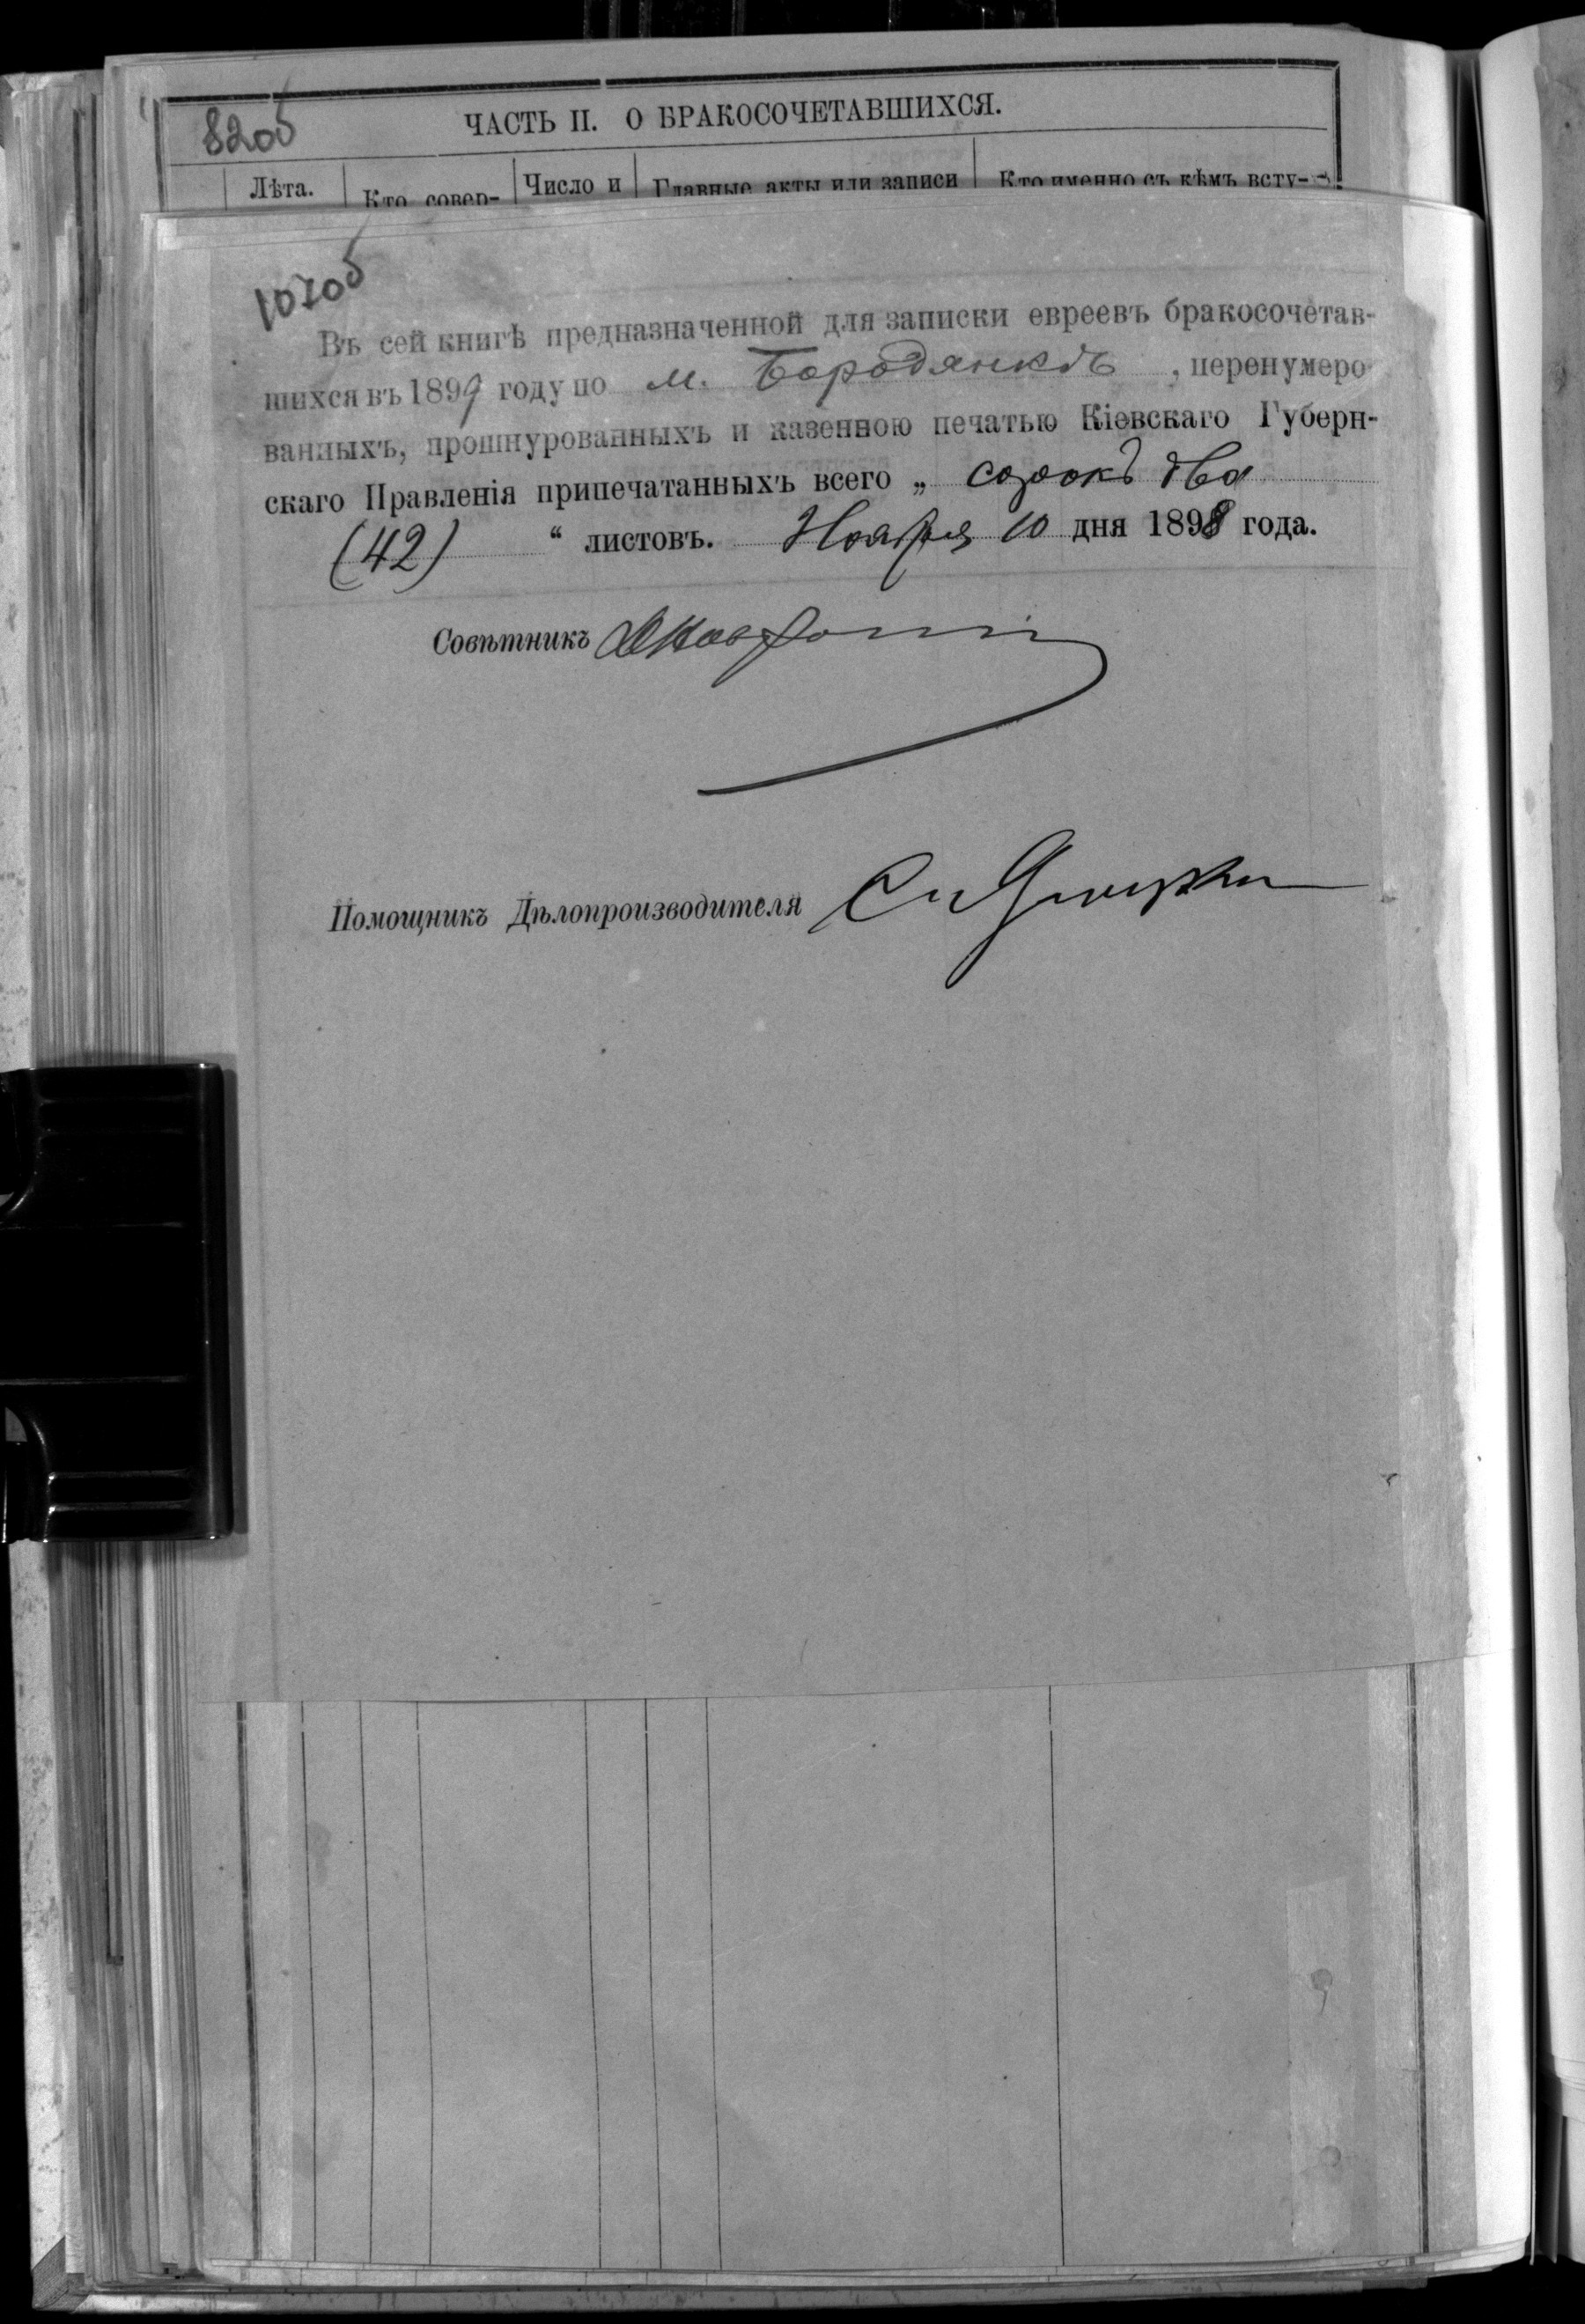 820б
ЧАСТЬ II. О БРАКОСОЧЕТАВШИХСЯ.
Лѣта. Кто совер- Число и Главные акты или записи Кто именно съ кѣмъ всту-
1070б
Въ сей книгѣ предназначенной для записки евреевъ бракосочетав-
шихся въ 1899 году по м. Бородянкѣ , перенумеро
ванныхъ, прошнурованныхъ и казенною печатью Кіевскаго Губерн-
скаго Правленія припечатанныхъ всего „ сорокъ два
(42) “ листовъ. Ноября 10 дня 1898 года.
Совѣтникъ
Помощникъ Дѣлопроизводителя